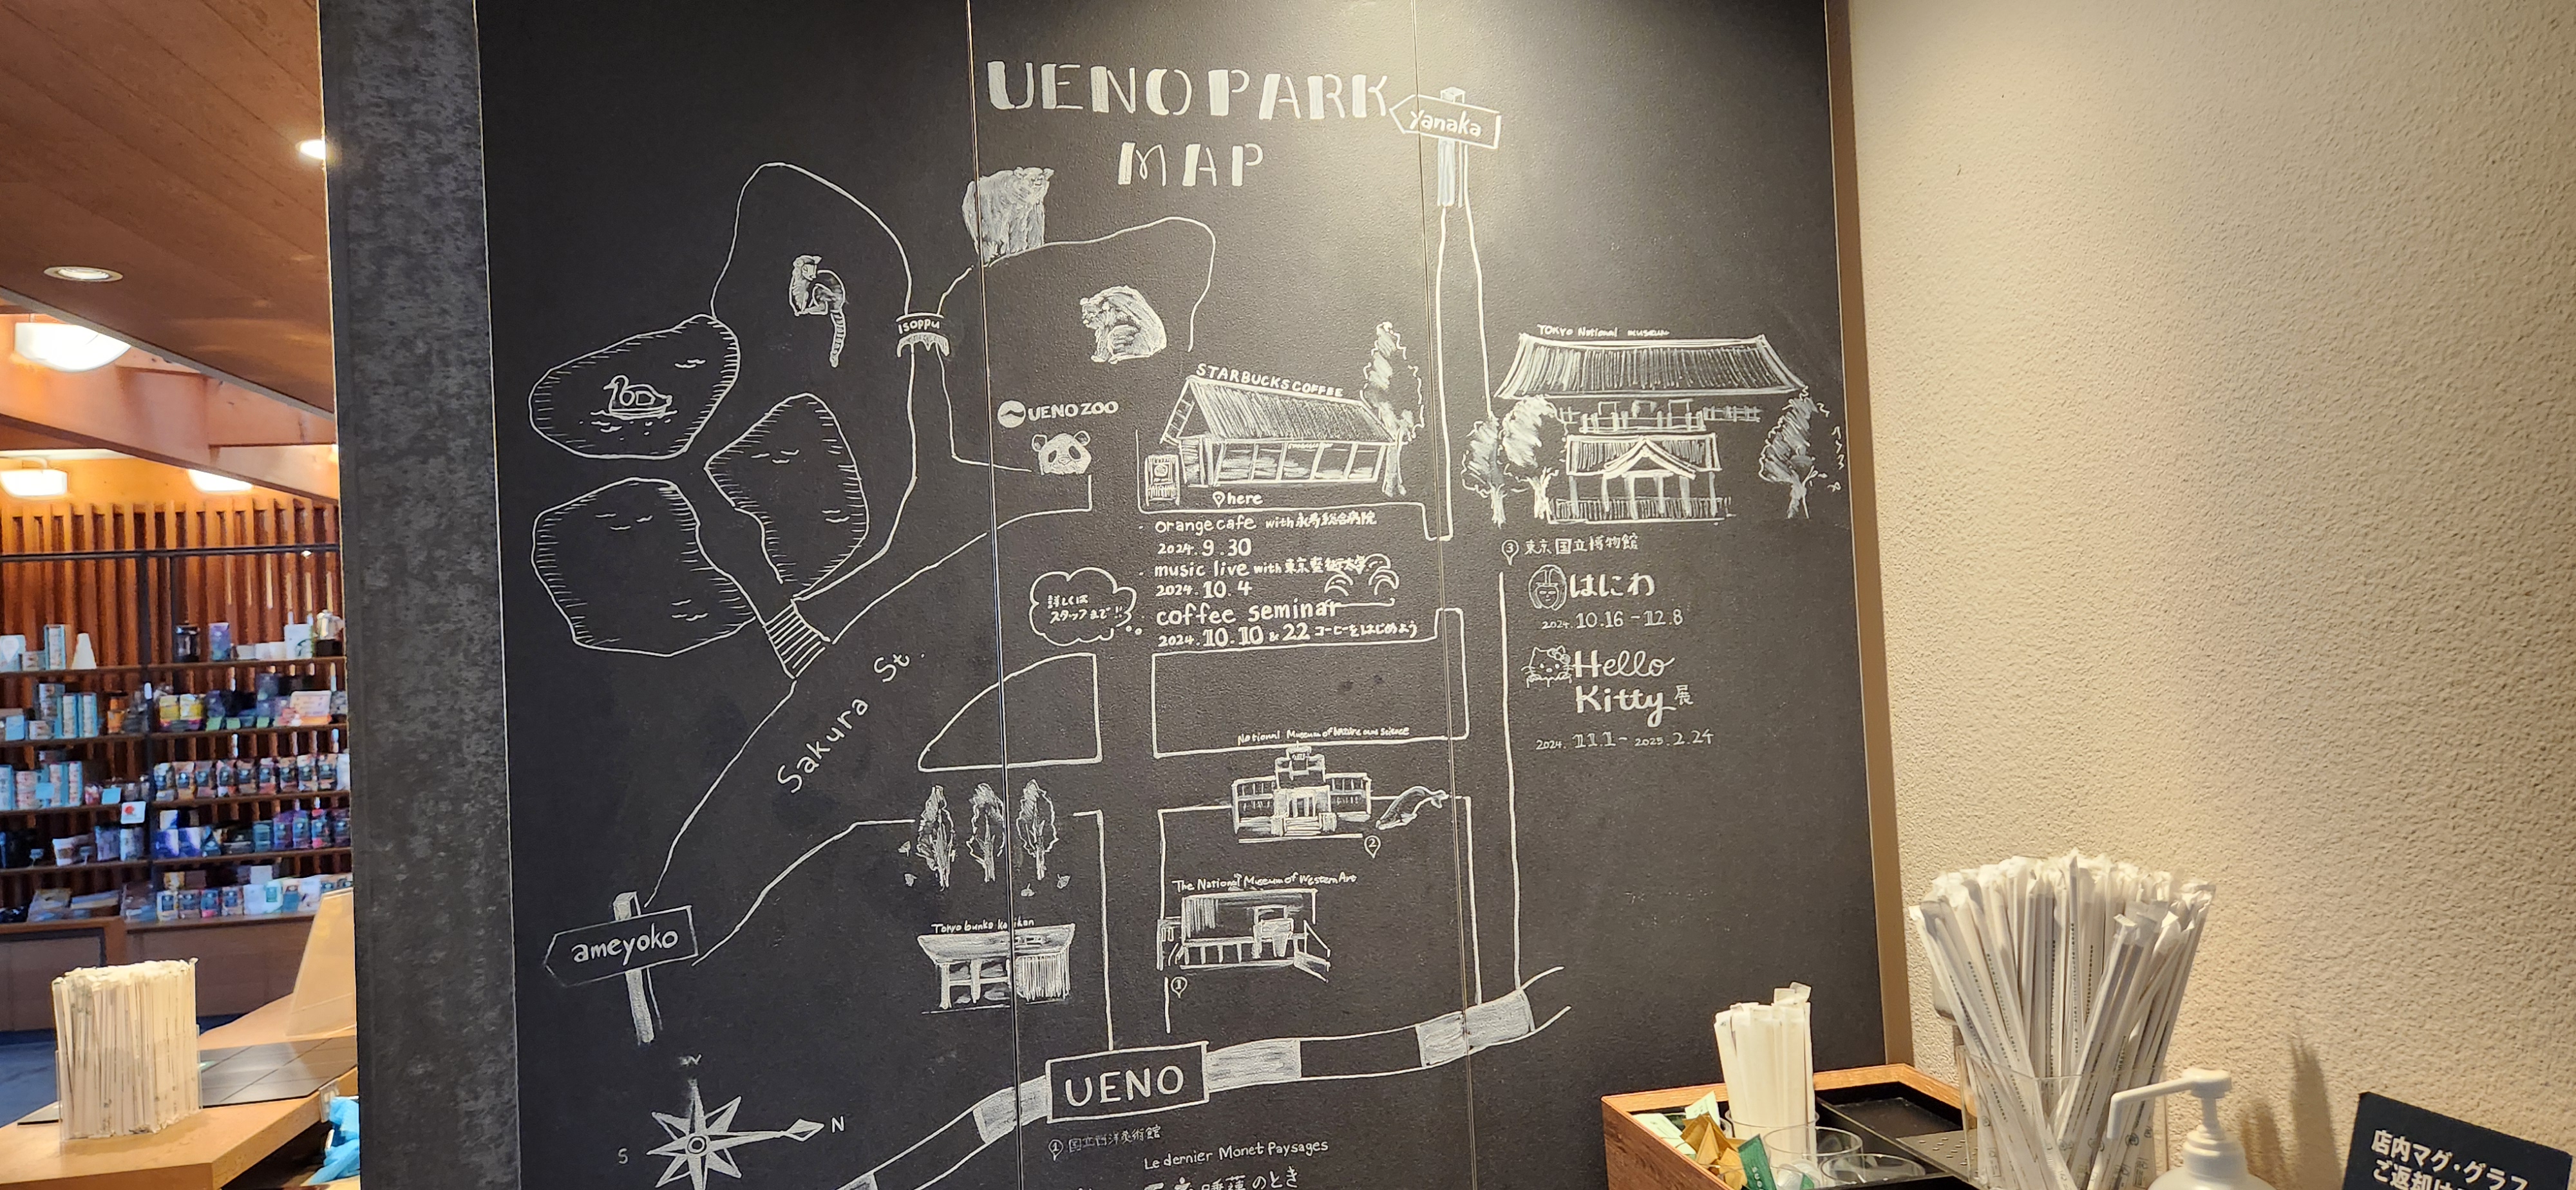 UENO PARK
MAP
yanaka
isoppu
UENO ZOO
STARBUCKS COFFEE
here
Tokyo National museum
orange cafe with 永寿総合病院
2024.9.30
music live with 東京藝術大学
2024.10.4
coffee seminar
2024.10.10 & 22 コーヒーをはじめよう
詳しくは
スタッフまで!!
③ 東京国立博物館
はにわ
2024.10.16-12.8
Hello
Kitty展
2024.11.1-2025.2.24
Sakura St.
National Museum of Nature and Science
②
The National Museum of Western Art
①
Tokyo bunka kaikan
ameyoko
UENO
W
N
S
① 国立西洋美術館
Le dernier Monet Paysages
睡蓮のとき
店内マグ・グラス